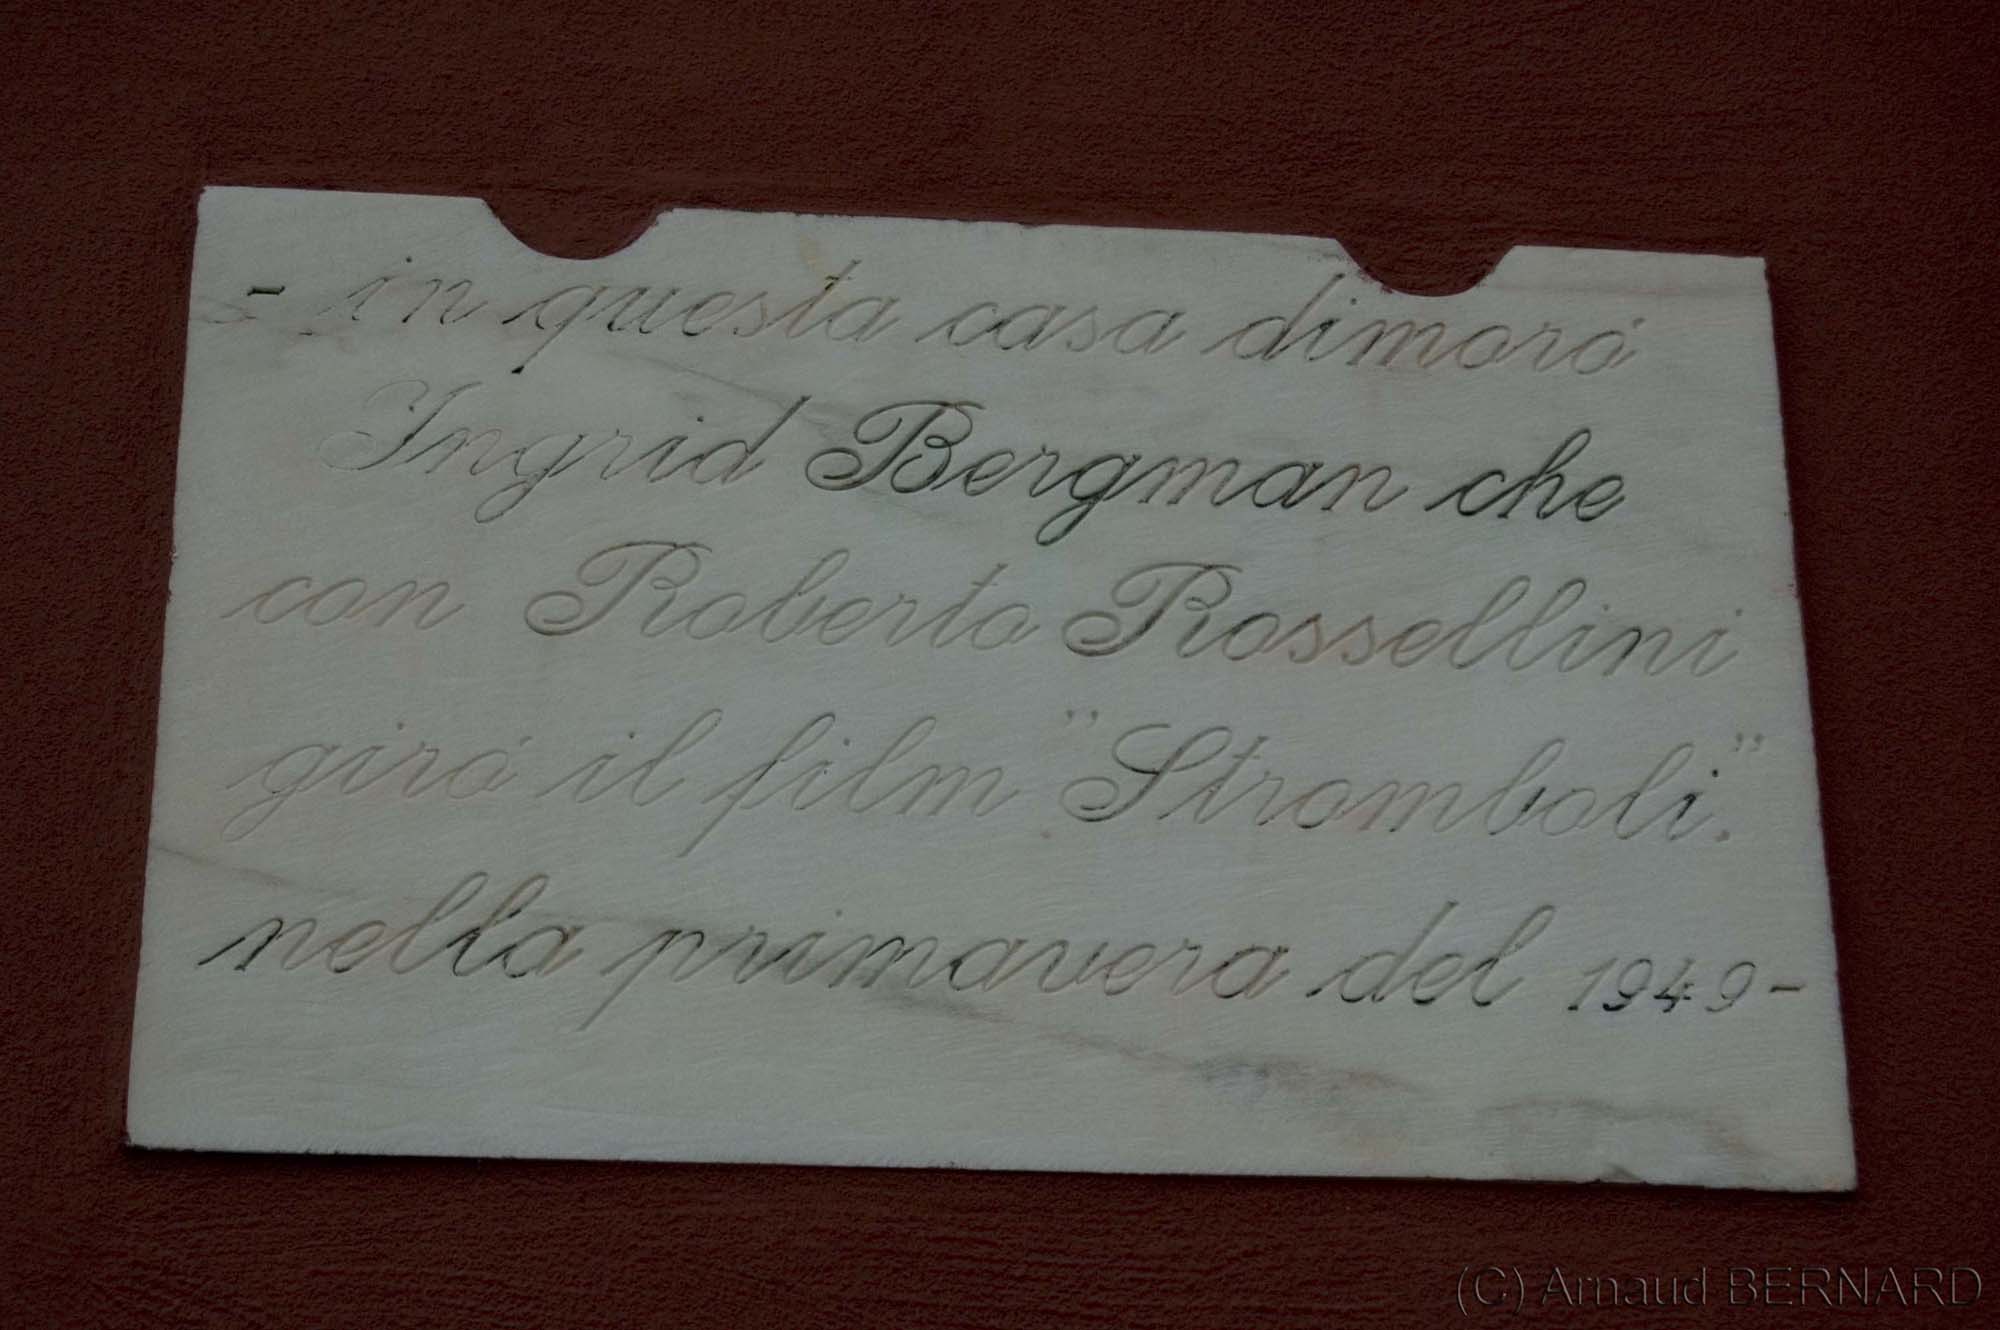 - in questa casa dimoró
Ingrid Bergman che
con Roberto Rossellini
giró il film "Stromboli."
nella primavera del 1949-
(C) Arnaud BERNARD